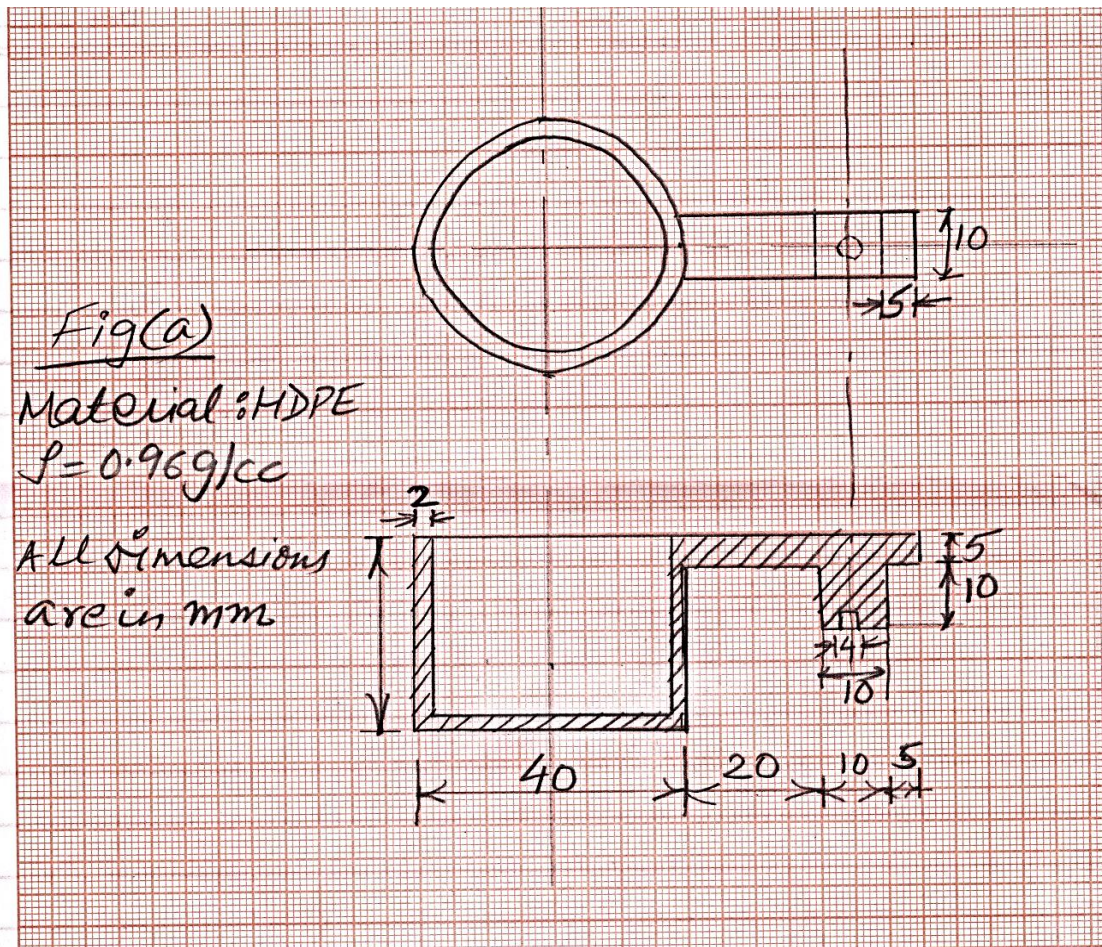 10
5
Fig(a)
Material: HDPE
ρ=0.96g/cc
2
All dimensions
are in mm
5
10
4
10
40
20
10
5